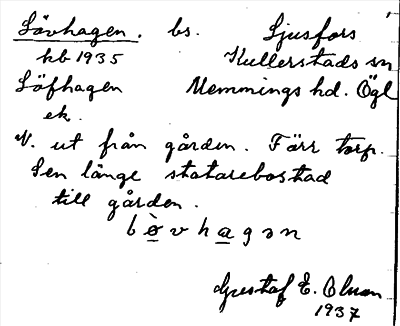 Lövhagen. bs. Ljusfors
kb 1935 Kullerstads sn
Löfhagen Memmings hd. Ögl
ek.
N. ut från gården. Förr torp.
Sen länge statarebostad
till gården.
l ø̀ v h a g ə n
Gustaf E. Olsson
1937